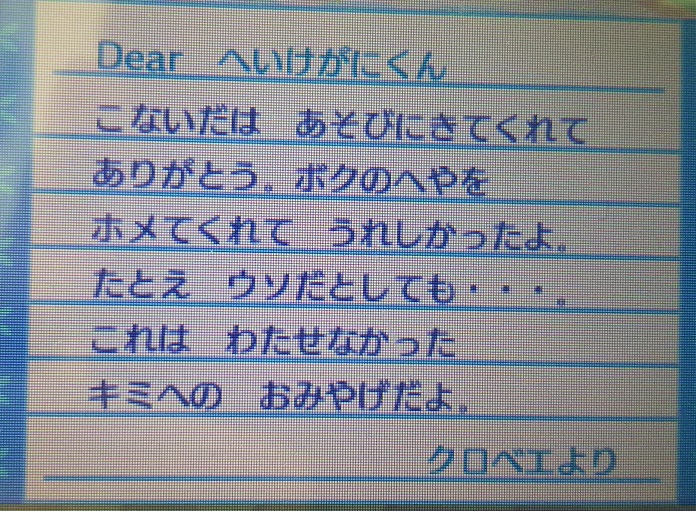 Dear へいけがにくん
こないだは あそびにきてくれて
ありがとう。ボクのへやを
ホメてくれて うれしかったよ。
たとえ ウソだとしても・・・。
これは わたせなかった
キミへの おみやげだよ。
クロベエより